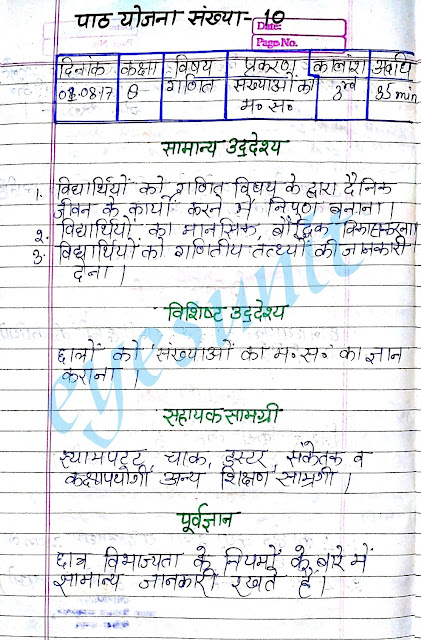 पाठ योजना संख्या- 10
Date:
Page No.
दिनांक कक्षा विषय प्रकरण कालांश अवधि
08.17 8 गणित संख्याओं का 3rd 35 min
म० स०
सामान्य उद्देश्य
1. विद्यार्थियों को गणित विषय के द्वारा दैनिक
जीवन के कार्यो करने में निपुण बनाना।
2. विद्यार्थियों का मानसिक, बौद्धिक विकास करना।
3. विद्यार्थियों को गणितीय तत्थ्यों की जानकारी
देना।
विशिष्ट उद्देश्य
छात्रों को संख्याओं का म० स० का ज्ञान
कराना।
सहायक सामग्री
श्यामपट्ट, चाक, डस्टर, संकेतक व
कक्षापयोगी अन्य शिक्षण सामग्री।
पूर्वज्ञान
छात्र विभाज्यता के नियमों के बारे में
सामान्य जानकारी रखते हैं।
eyesunit